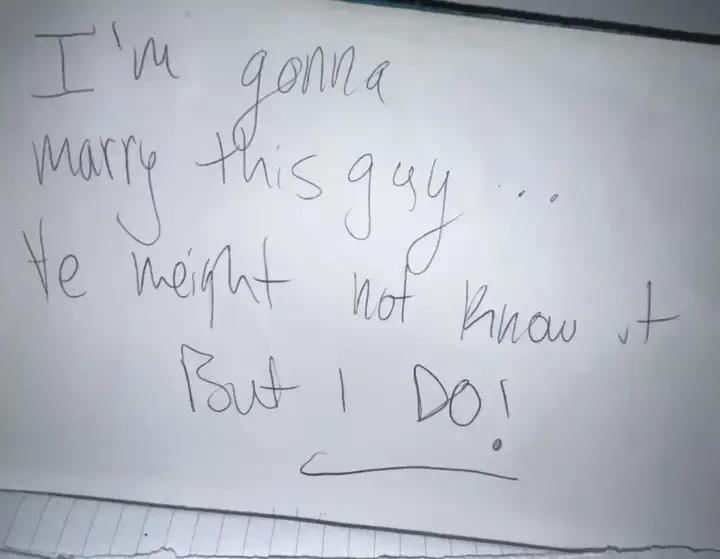 I'm gonna
marry this guy ...
He meight not know it
But I DO!